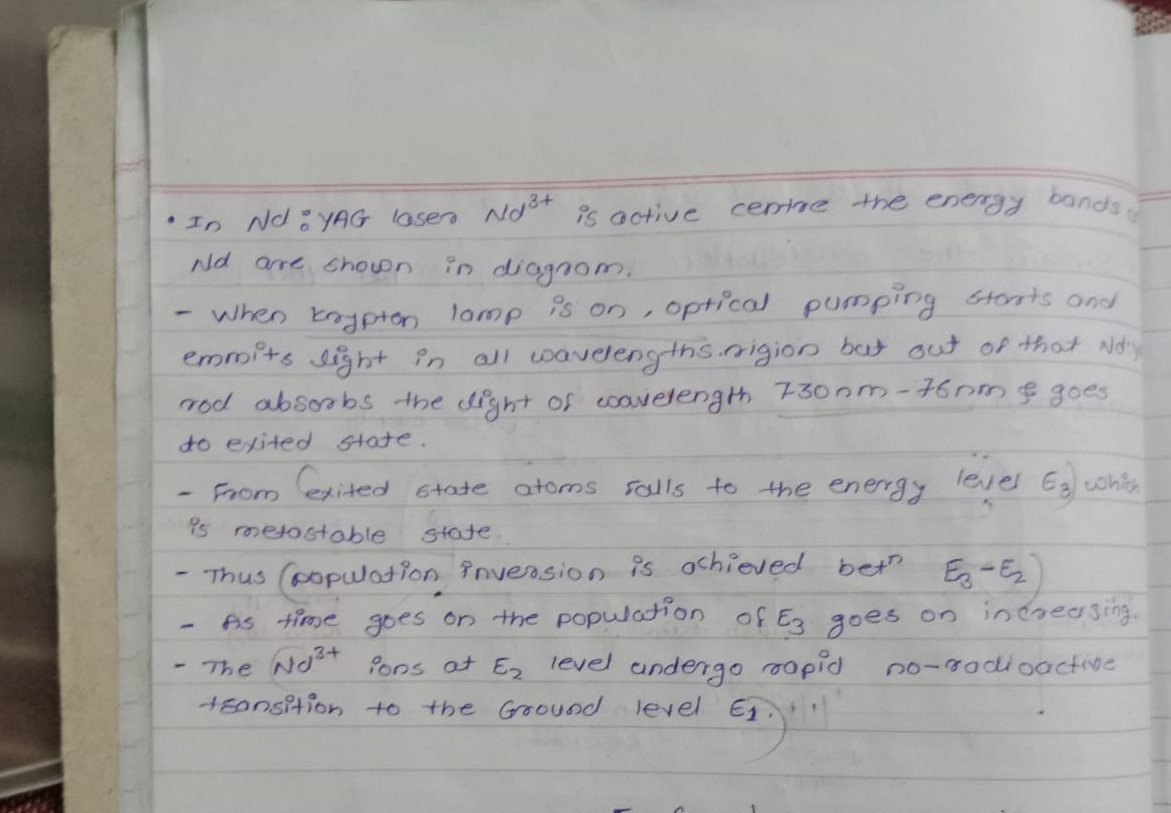 • In Nd:YAG laser Nd3+ is active centre the energy bands
Nd are shown in diagram.
- When krypton lamp is on, optical pumping starts and
emmits light in all wavelengths.rigion but out of that Nd:Y
rod absorbs the light of wavelength 730nm-76nm & goes
to exited state.
- From (exited state atoms falls to the energy level E3) which
is metastable state.
- Thus (population inversion is achieved betn E3-E2)
- As time goes on the population of E3 goes on increasing.
- The Nd3+ ions at E2 level undergo rapid no-radioactive
transition to the Ground level E1.